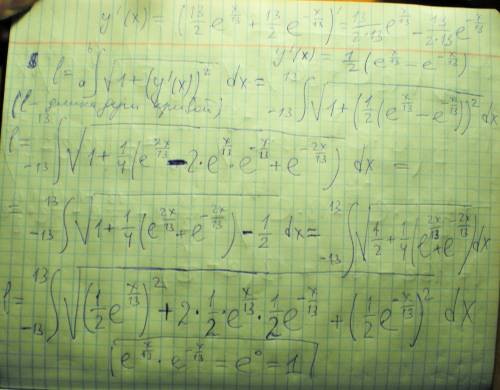 y'(x) = (13/2 e^(x/13) + 13/2 e^(-x/13))' = 13/(2·13) e^(x/13) - 13/(2·13) e^(-x/13)
y'(x) = 1/2 (e^(x/13) - e^(-x/13))
l = ∫_a^b √(1+(y'(x))²) dx = ∫_(-13)^13 √(1+(1/2(e^(x/13) - e^(-x/13)))²) dx
(l - длина дуги кривой)
l = ∫_(-13)^13 √(1+1/4(e^(2x/13) - 2·e^(x/13)·e^(-x/13) + e^(-2x/13))) dx =
= ∫_(-13)^13 √(1+1/4(e^(2x/13) + e^(-2x/13)) - 1/2) dx = ∫_(-13)^13 √(1/2+1/4(e^(2x/13) + e^(-2x/13))) dx
l = ∫_(-13)^13 √((1/2 e^(x/13))² + 2·1/2·e^(x/13)·1/2 e^(-x/13) + (1/2 e^(-x/13))²) dx
= [e^(x/13)·e^(-x/13) = e^0 = 1]